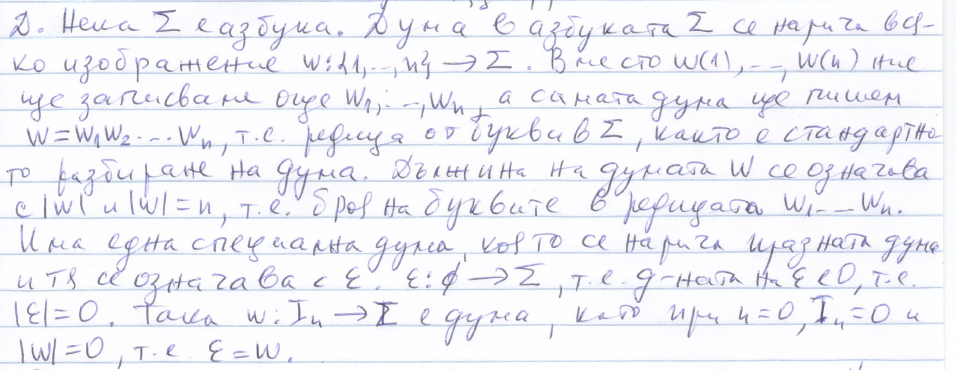 Д. Нека Σ е азбука. Дума в азбуката Σ се нарича вся-
ко изображение w:{1,..,n} → Σ. Вместо w(1),..,w(n) ние
ще записваме още w₁,..,wₙ, а самата дума ще пишем
w=w₁w₂...wₙ, т.е. редица от букви в Σ, както е стандартно-
то разбиране на дума. Дължина на думата w се означава
с |w| и |w|=n, т.е. броя на буквите в редицата w₁...wₙ.
Има една специална дума, която се нарича празната дума
и тя се означава с ε. ε:∅ → Σ, т.е. д-ната на ε е 0, т.е.
|ε|=0. Така w:Iₙ → Σ е дума, като при n=0, Iₙ=0 и
|w|=0, т.е. ε=w.